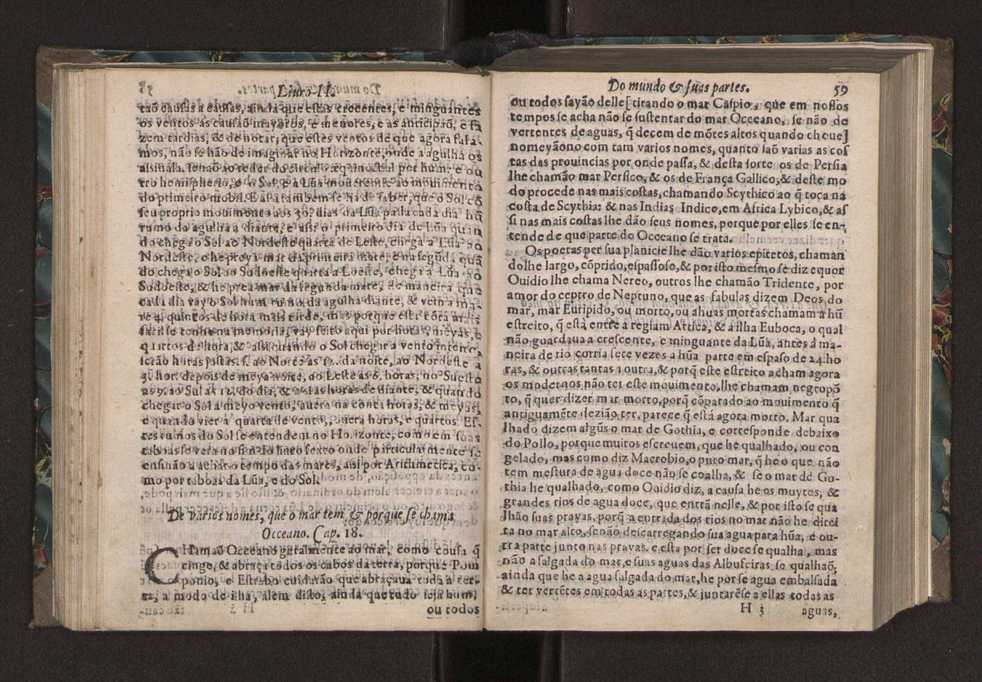 Liuro II.
tão causas a causas, ainda que estas crecentes, e minguantes
os ventos as causão mayores, e menores, e as anticipaõ, e fa
zem tardias, & de notar, que estes ventos de que agora fala-
mos, não se hão de imaginar no Horizonte, onde a agulha os
tro hemispherio, e o Sol, e a Lũa
do primeiro mobil.
seu proprio mouimento aos 30. dias da Lũa palla cada dia hũ
rumo da agulha a diante, e assi o primeiro dia de Lũa quan
do chega o Sol ao Nordeste quarta de Leste, chega a Lũa ao
Nordeste, o
do chega o Sol ao Sudoeste quarta a Loeste, chega a Lũa ao
Sudoeste, & he prea mar da segunda mare, de maneira que
cada dia vay o Sol hum rumo da agulha diante, & vem a ma-
re 4. quintos de hora mais tarde, mas porque esta
se tenha na memoria, vay feito aqui por horas, meyas, e
quartos de hora, & assi quando o Sol chegar a vento inteiro
ao Norte as 12. da noite, ao Nordeste a
3. hor. depois de meya noite, ao Leste as 6. horas, no Sueste
as 9. ao Sul as 12. do dia, & as horas de diante, & quando
chegar o Sol a meyo vento, auera na conta horas, & meyas,
e quando vier a quarta de vento, auera horas, e quartos. Es-
tes rumos do Sol se entendem no Horizonte, como em suas
taboas se vera no fim do liuro sexto onde particularmente se
ensinão a achar o tempo das mares, assi por Arithmetica, co-
mo por taboas da Lũa, e do Sol.
De varios nomes, que o mar tem, & porque se chama
Occeano. Cap. 18.
CHamaõ Occeano geralmente ao mar, como cousa q̃
cinge, & abraça todos os cabos da terra, porque Pom
ponio, e Estrabo cuidarão que abraçaua toda a ter-
ra, a modo de ilha, alem disto, ainda que tudo seja hum,
H 3 ou todos
Do mundo & suas partes. 59
ou todos sayão delle [tirando o mar Caspio, que em nossos
tempos se acha não se sustentar do mar Occeano, se não de
vertentes de aguas, q̃ decem de mõtes altos quando choue]
nomeyãono com tam varios nomes, quanto saõ varias as cos
tas das prouincias por onde passa, & desta sorte os de Persia
lhe chamão mar Persico, & os de França Gallico, & deste mo
do procede nas mais costas, chamando Scythico ao q̃ toca na
costa de Scythia: & nas Indias Indico, em Africa Lybico, & as
si nas mais costas lhe dão seus nomes, perque por elles se en-
tende de que parte do Occeano se trata.
Os poetas per sua planicie lhe dão varios epitetos, chaman
dolhe largo, cõprido, espassoso, & por isto mesmo se diz equor
Ouidio lhe chama Nereo, outros lhe chamão Tridente, por
amor do ceptro de Neptuno, que as fabulas dizem Deos do
mar, mar Euripido, ou morto, ou ahuas mortas chamam a hũ
estreito, q̃ está entre a regiam Attica, & a ilha Euboca, o qual
não guardaua a crescente, e minguante da Lũa, antes á ma-
neira de rio corria sete vezes a hũa parte em espaso de 24. ho
ras, & outras tantas a outra, & porq̃ este estreito acham agora
os modernos não ter este mouimento, lhe chamam negropõ
to, q̃ quer dizer mar morto, porq̃ cõparado ao mouimento q̃
antiguamẽte dezião ter, parece q̃ está agora morto. Mar qua
lhado dizem algũs o mar de Gothia, e corresponde debaixo
do Pollo, porque muitos escreuem, que he qualhado, ou con
gelado, mas como diz Macrobio, o puro mar, q̃ he o que não
tem mestura de agua doce não se coalha, & se o mar de Go-
thia he qualhado, como Ouidio diz, a causa he os muytos, &
grandes rios de agua doce, que entrã nelle, & por isto se qua
lhão suas prayas, porq̃ a entrada dos rios no mar não he direi
ta no mar alto, senão descarregando sua agua para hũa, e ou-
tra parte junto nas prayas, e esta por ser doce se qualha, mas
não a salgada do mar, e suas aguas das Albufeiras so qualhaõ,
ainda que he a agua salgada do mar, he por se agua embalsada
& ter vertẽtes em todas as partes, & juntarẽse a ellas todas as
H 3 aguas,